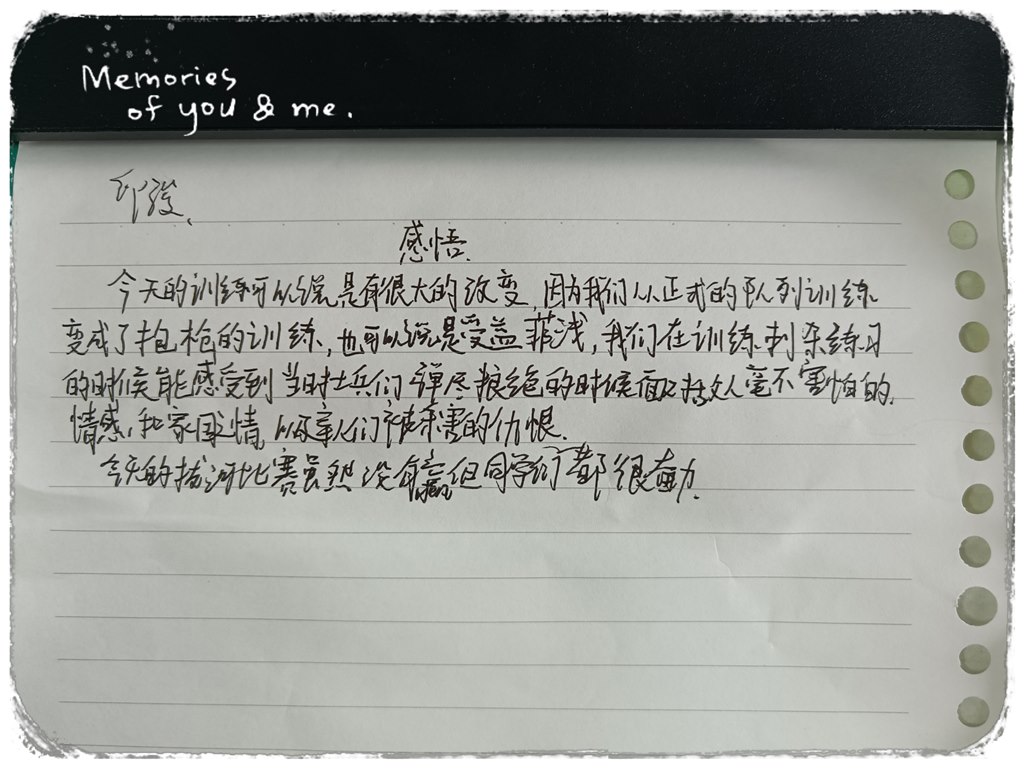 Memories
of you & me.
感悟
今天的训练可以说是有很大的改变 因为我们从正式的队列训练
变成了抱枪的训练,也可以说是受益菲浅,我们在训练刺杀练习
的时候能感受到当时士兵们弹尽粮绝的时候面对敌人毫不害怕的
情感,和家国情,以及亲人们被杀害的仇恨.
今天的拔河比赛虽然没有赢但同学们都很奋力.